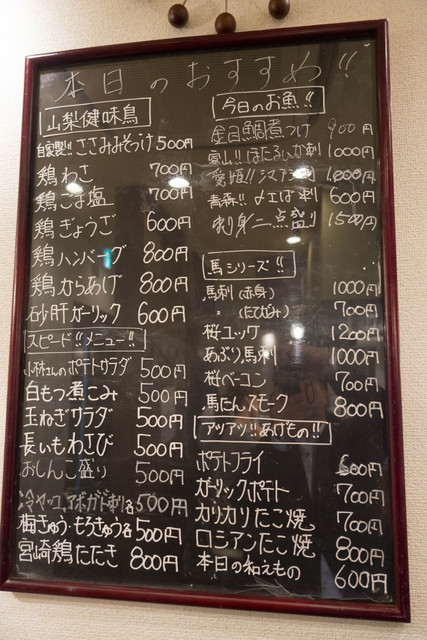 本日のおすすめ!!
山梨健味鳥
自家製!! ささみみそつけ 500円
鶏わさ 700円
鶏ごま塩 700円
鶏ぎょうざ 600円
鶏ハンバーグ 800円
鶏からあげ 800円
砂肝ガーリック 600円
スピード!!メニュー!!
小林さんのポテトサラダ 500円
白もつ煮こみ 500円
玉ねぎサラダ 500円
長いもわさび 500円
おしんこ盛り 500円
冷やっコ、アボガド刺 各500円
梅きゅう・もろきゅう 各500円
宮崎鶏たたき 800円
今日のお魚!!
金目鯛煮つけ 900円
富山!! ほたるいか刺 1000円
愛媛!! シマアジ刺 1000円
青森!! 〆さば刺 600円
刺身二点盛り 1500円
馬シリーズ!!
馬刺(赤身) 1000円
〃(たてがみ) 700円
桜ユッケ 1200円
あぶり馬刺 1000円
桜ベーコン 700円
馬たんスモーク 800円
アツアツ!!あげもの!!
ポテトフライ 600円
ガーリックポテト 700円
カリカリたこ焼 700円
ロシアンたこ焼 800円
本日の和えもの 600円